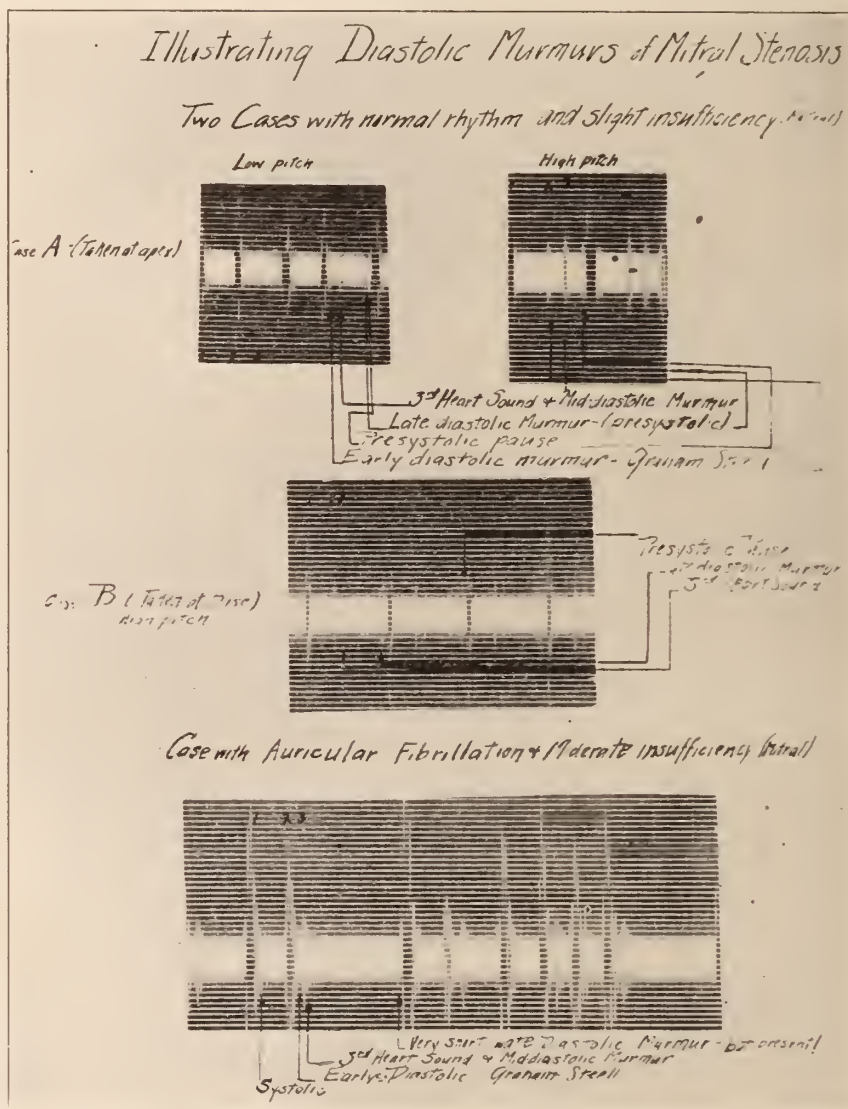 Illustrating Diastolic Murmurs of Mitral Stenosis
Two Cases with normal rhythm and slight insufficiency
Low pitch
High pitch
Case A - (Taken at apex)
3rd Heart Sound & Mid-diastolic Murmur
Late diastolic Murmur - (presystolic)
Presystolic pause
Early diastolic murmur - Graham
Presystolic
diastolic Murmur
3rd Sound
B (Taken at
pitch
Case with Auricular Fibrillation & Moderate insufficiency (Mitral)
1 2 3
Very short Late Diastolic Murmur - but present!
3rd Heart Sound & Middiastolic Murmur
Early-Diastolic Graham Steell
Systolic